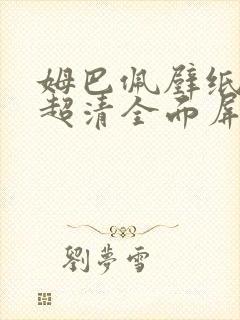 姆巴佩壁纸
超清全面屏
劉夢雪